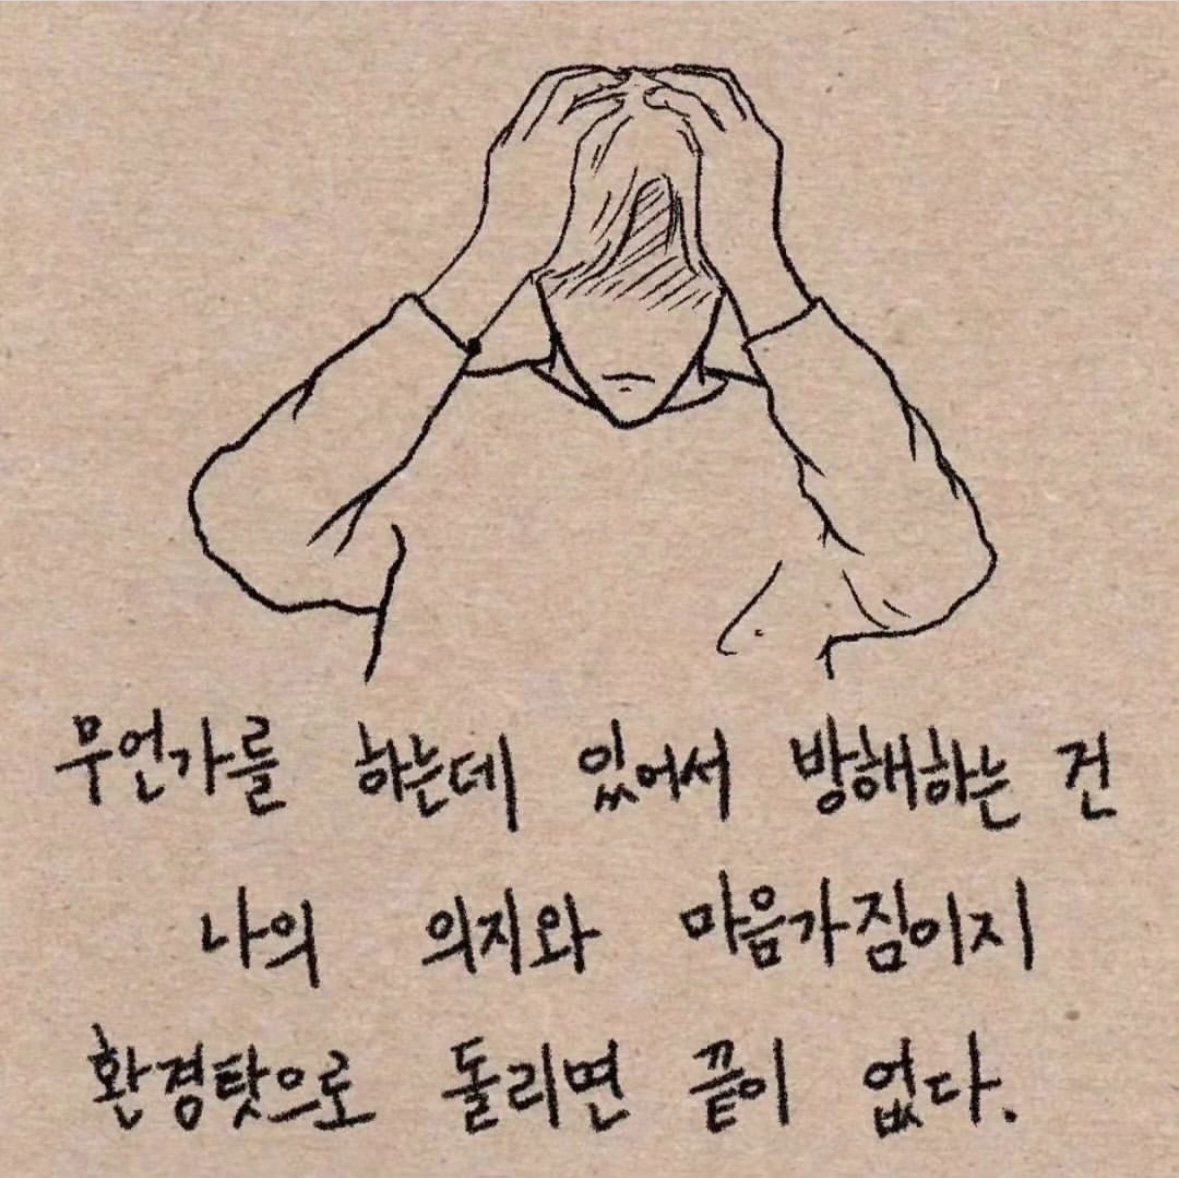 무언가를 하는데 있어서 방해하는 건
나의 의지와 마음가짐이지
환경탓으로 돌리면 끝이 없다.